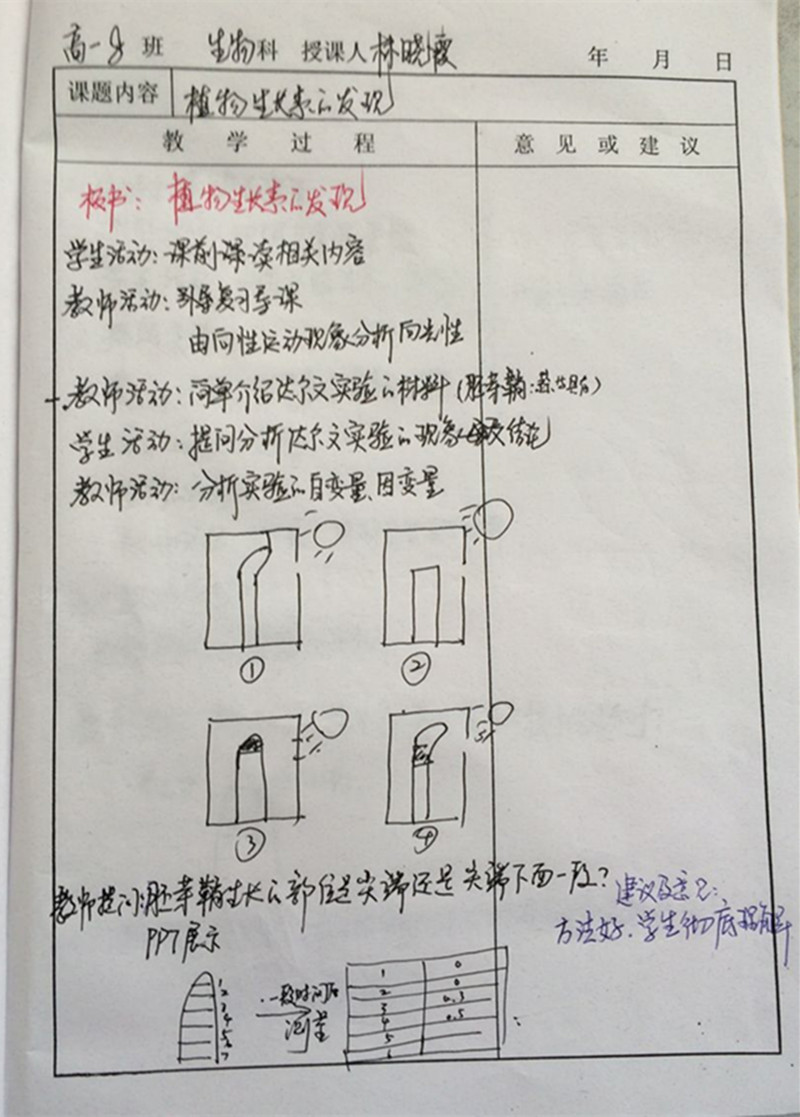 高一8班 生物科 授课人 林晓霞 年 月 日
课题内容 植物生长素的发现
教 学 过 程 意 见 或 建 议
板书：植物生长素的发现
学生活动：课前课读相关内容
教师活动：引导复习导课
由向性运动现象分析向光性
教师活动：简单介绍达尔文实验的材料（胚芽鞘：
学生活动：提问分析达尔文实验的现象及结论
教师活动：分析实验的自变量、因变量
① ②
③ ④
教师提问：胚芽鞘生长的部位是尖端还是尖端下面一段？
建议及意见：
方法好、学生彻底
PPT展示
1
2
3
4
5
6
7
一段时间后
测量
1 0
2 0
3 0.3
4 0.5
5
6